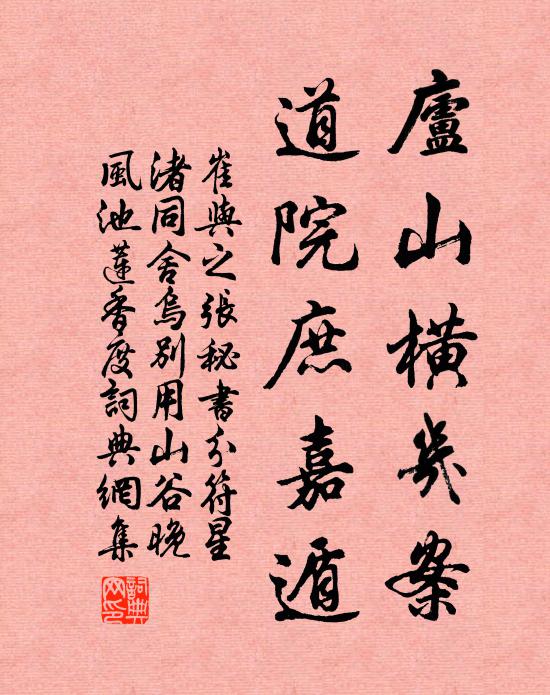 廬山橫几案
道院庶嘉遁
崔與之張秘書分符星
渚同舍烏別用山谷晚
風池蓮香度詞典網集
詞典
網印